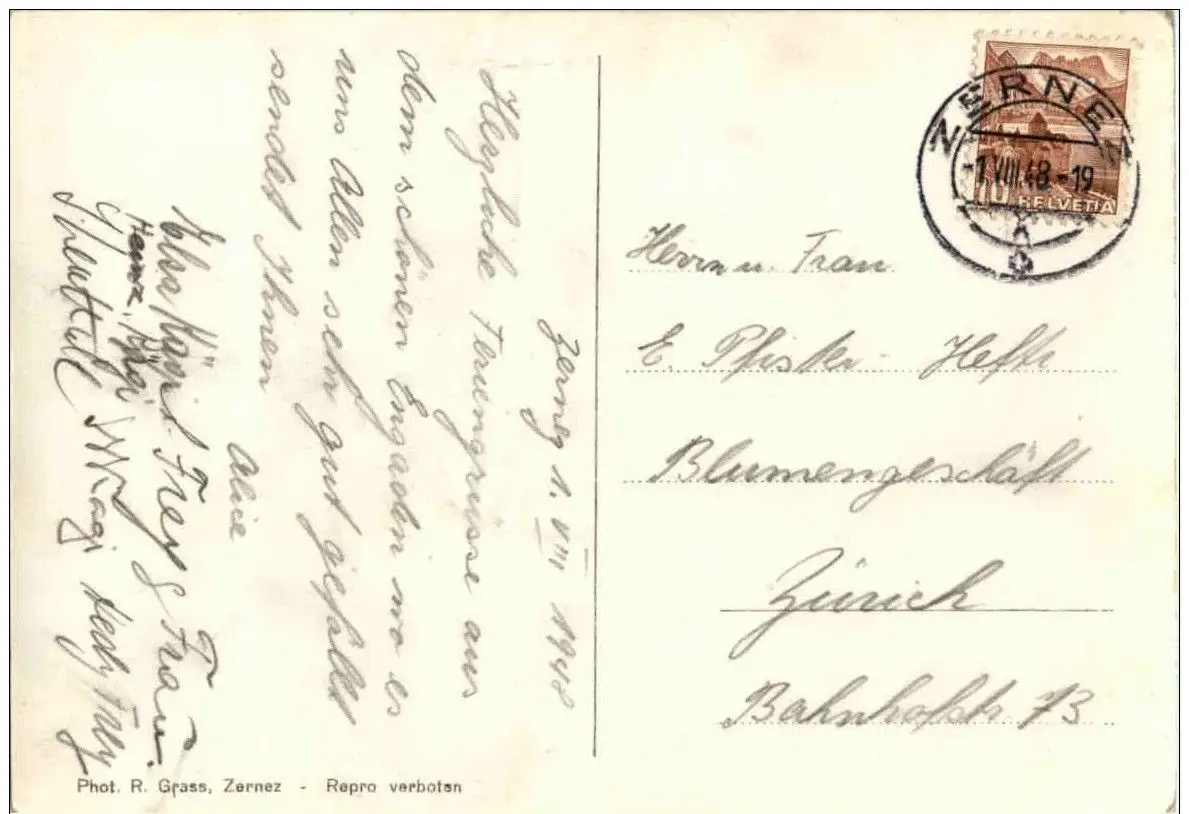 Zernez 1. VIII 1948
Herzliche Feriengrüsse aus
dem schönen Engadin wo es
uns Allen sehr gut gefällt
sendet Ihnen
Alice
Elsa Kägi
Frey & Frau.
Heinz Kägi
Hedy Frey
Phot. R. Grass, Zernez - Repro verboten
ZERNEZ
-1.VIII.48.-19
10 HELVETIA
Herrn u. Frau
E. Pfister-Hefti
Blumengeschäft
Zürich
Bahnhofstr. 73